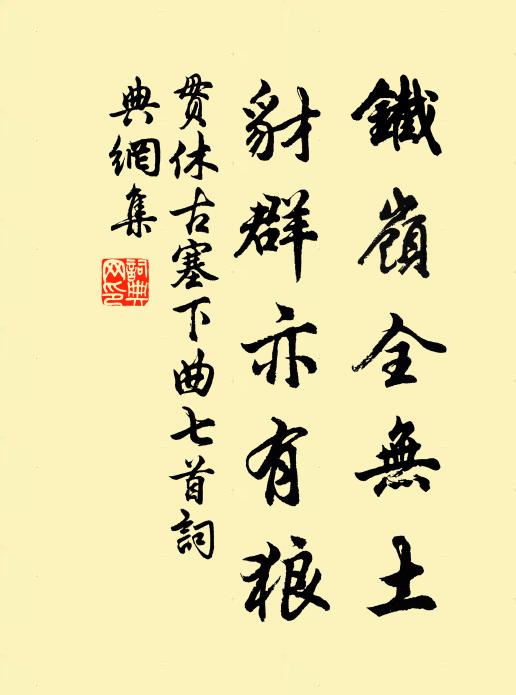 鐵嶺全無土
豺群亦有狼
貫休古塞下曲七首詞
典網集
詞典
网印